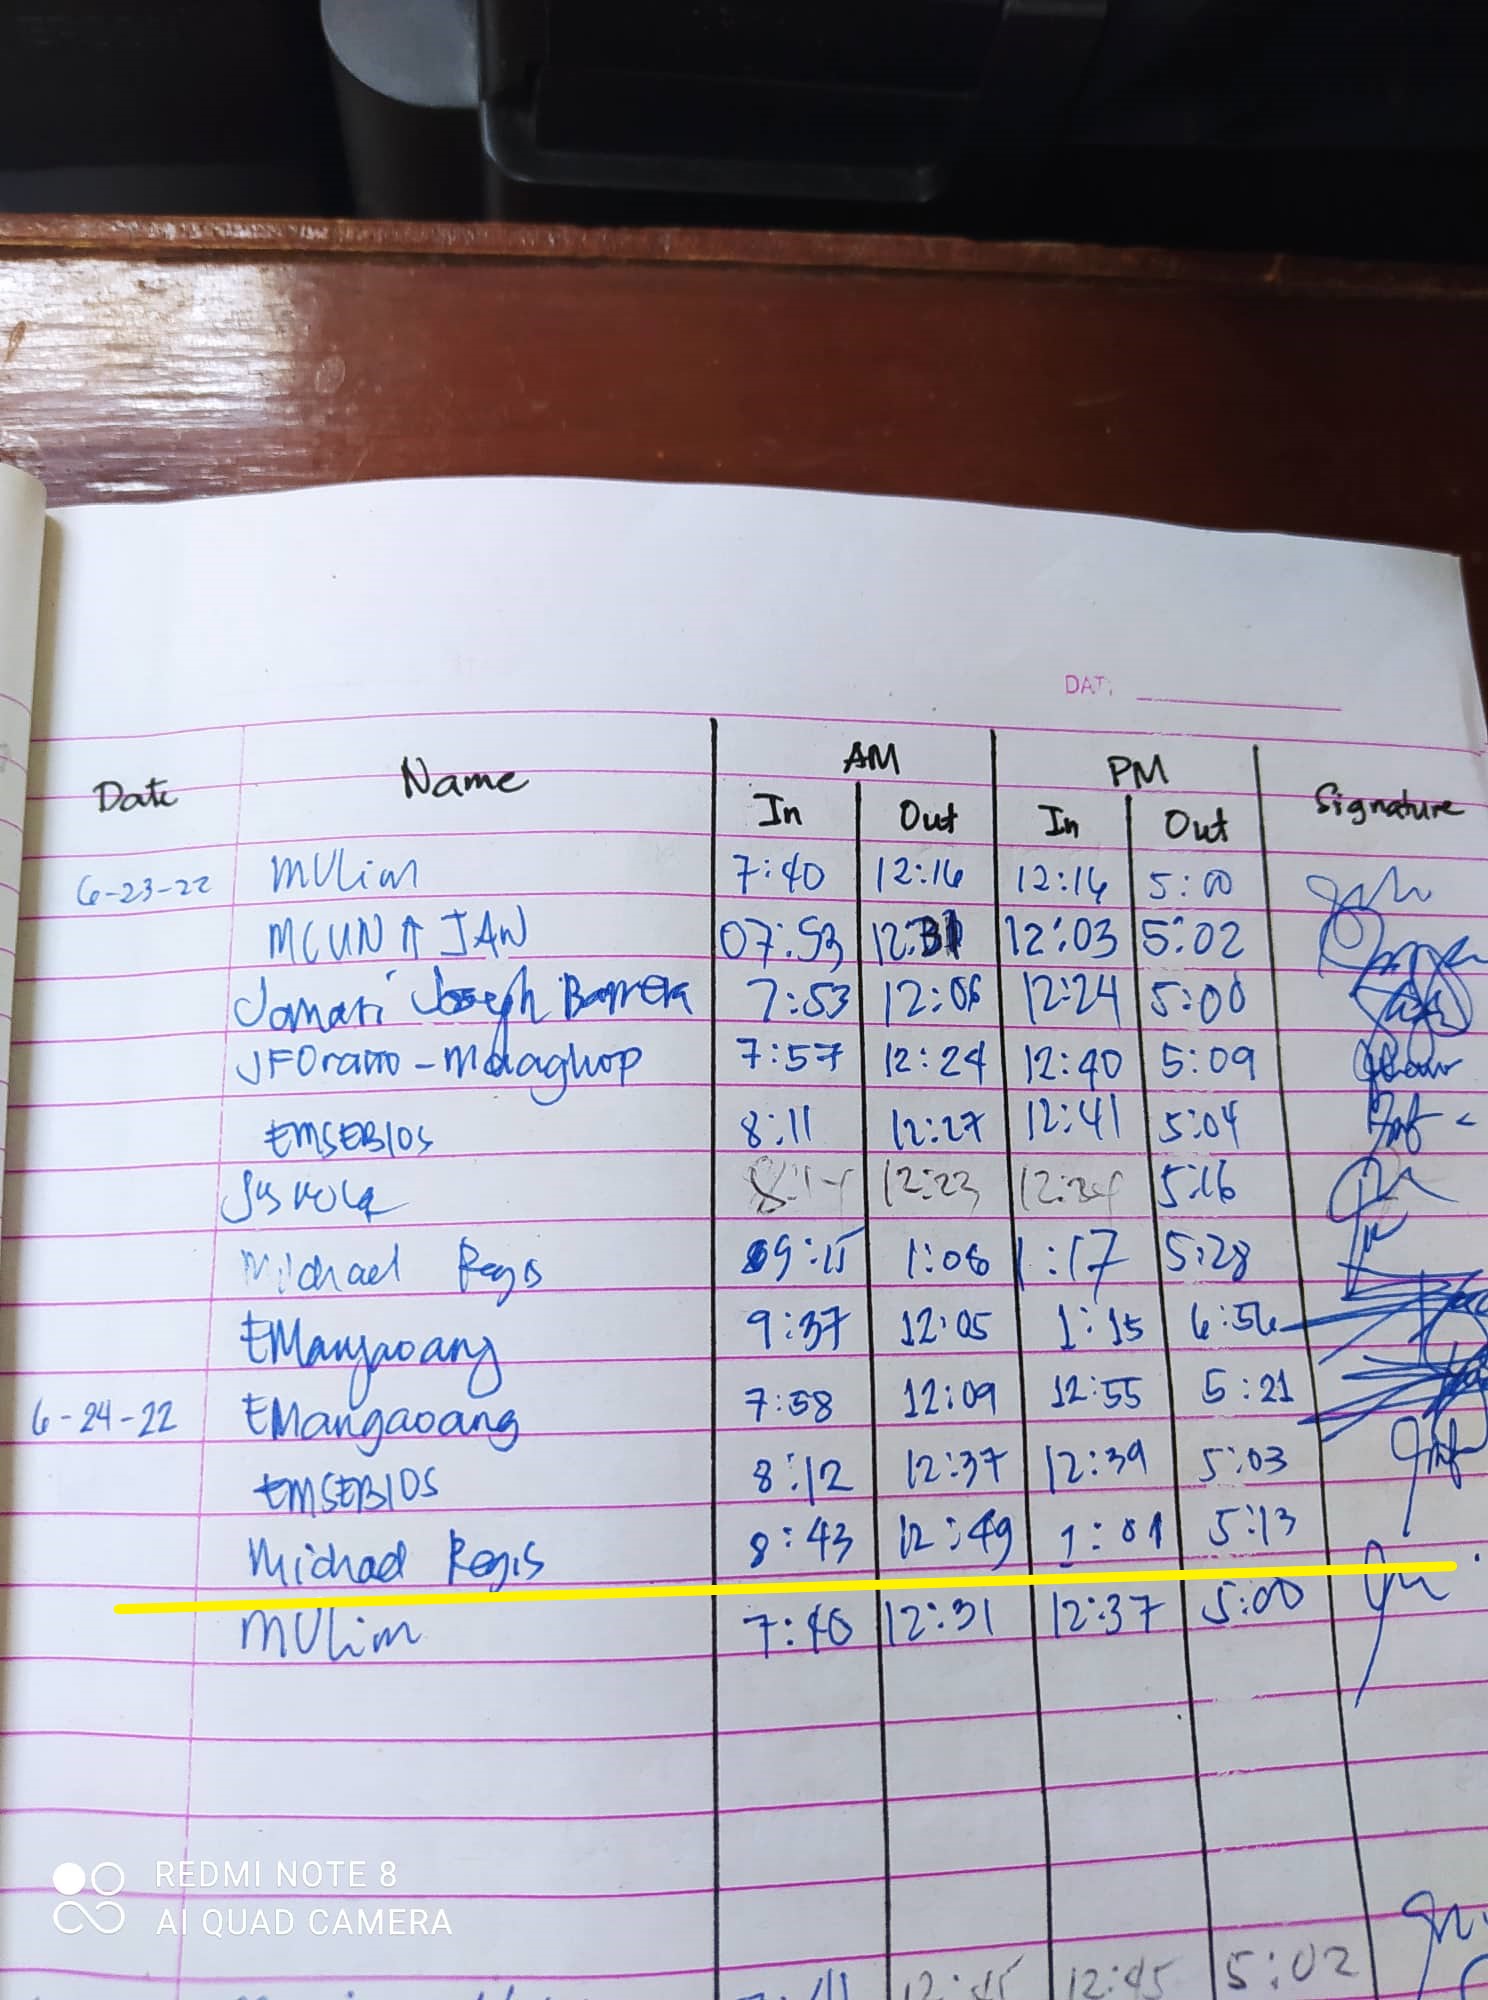 DATE
Date Name AM PM Signature
In Out In Out
6-23-22 MVLim 7:40 12:16 12:16 5:00
07:53 12:31 12:03 5:02
Jomari Joseph Barrera 7:53 12:06 12:24 5:00
7:57 12:24 12:40 5:09
EMSEBIOS 8:11 12:27 12:41 5:04
12:23 5:16
Michael Regis 09:15 1:08 1:17 5:28
EMangaoang 9:37 12:05 1:15 6:56
6-24-22 EMangaoang 7:58 12:09 12:55 5:21
EMSEBIOS 8:12 12:37 12:39 5:03
Michael Regis 8:43 12:49 1:01 5:13
MVLim 7:40 12:31 12:37 5:00
12:45 12:45 5:02
REDMI NOTE 8
AI QUAD CAMERA